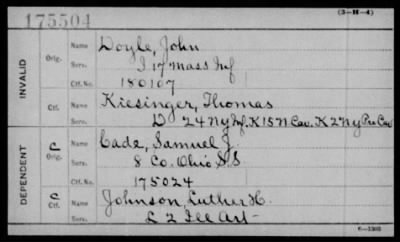 175504
(3-H-4)
INVALID
Orig.
Name Doyle, John
Serv. I 17 Mass Inf
Ctf. No. 180107
Ctf.
Name Kiesinger, Thomas
Serv. D 24 Ny Inf. K 15 N Cav. K 2 Ny Pro Cav
DEPENDENT
C
Orig.
Name Cade, Samuel J.
Serv. 8 Co. Ohio S.S.
Ctf. No. 175024
C
Ctf.
Name Johnson, Luther H.
Serv. L 2 Ill Art
6-1303